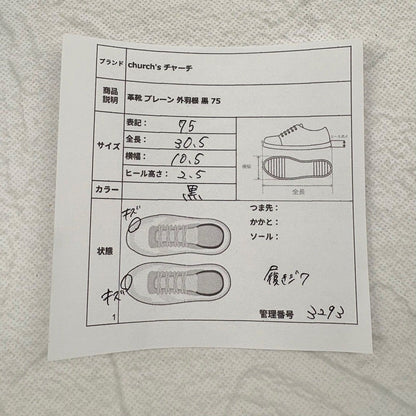 ブランド church's チャーチ
商品説明 革靴 プレーン 外羽根 黒 75
サイズ
表記: 75
全長: 30.5
横幅: 10.5
ヒール高さ: 2.5
ヒール高さ
横幅
全長
カラー 黒
状態
キズ
キズ
つま先:
かかと:
ソール:
履きジワ
1
管理番号 3293